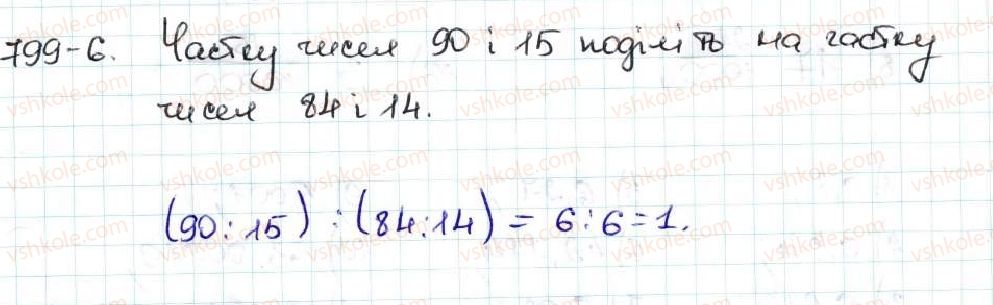 799-6. Частку чисел 90 і 15 поділіть на частку
чисел 84 і 14.
(90:15) : (84:14) = 6:6=1.